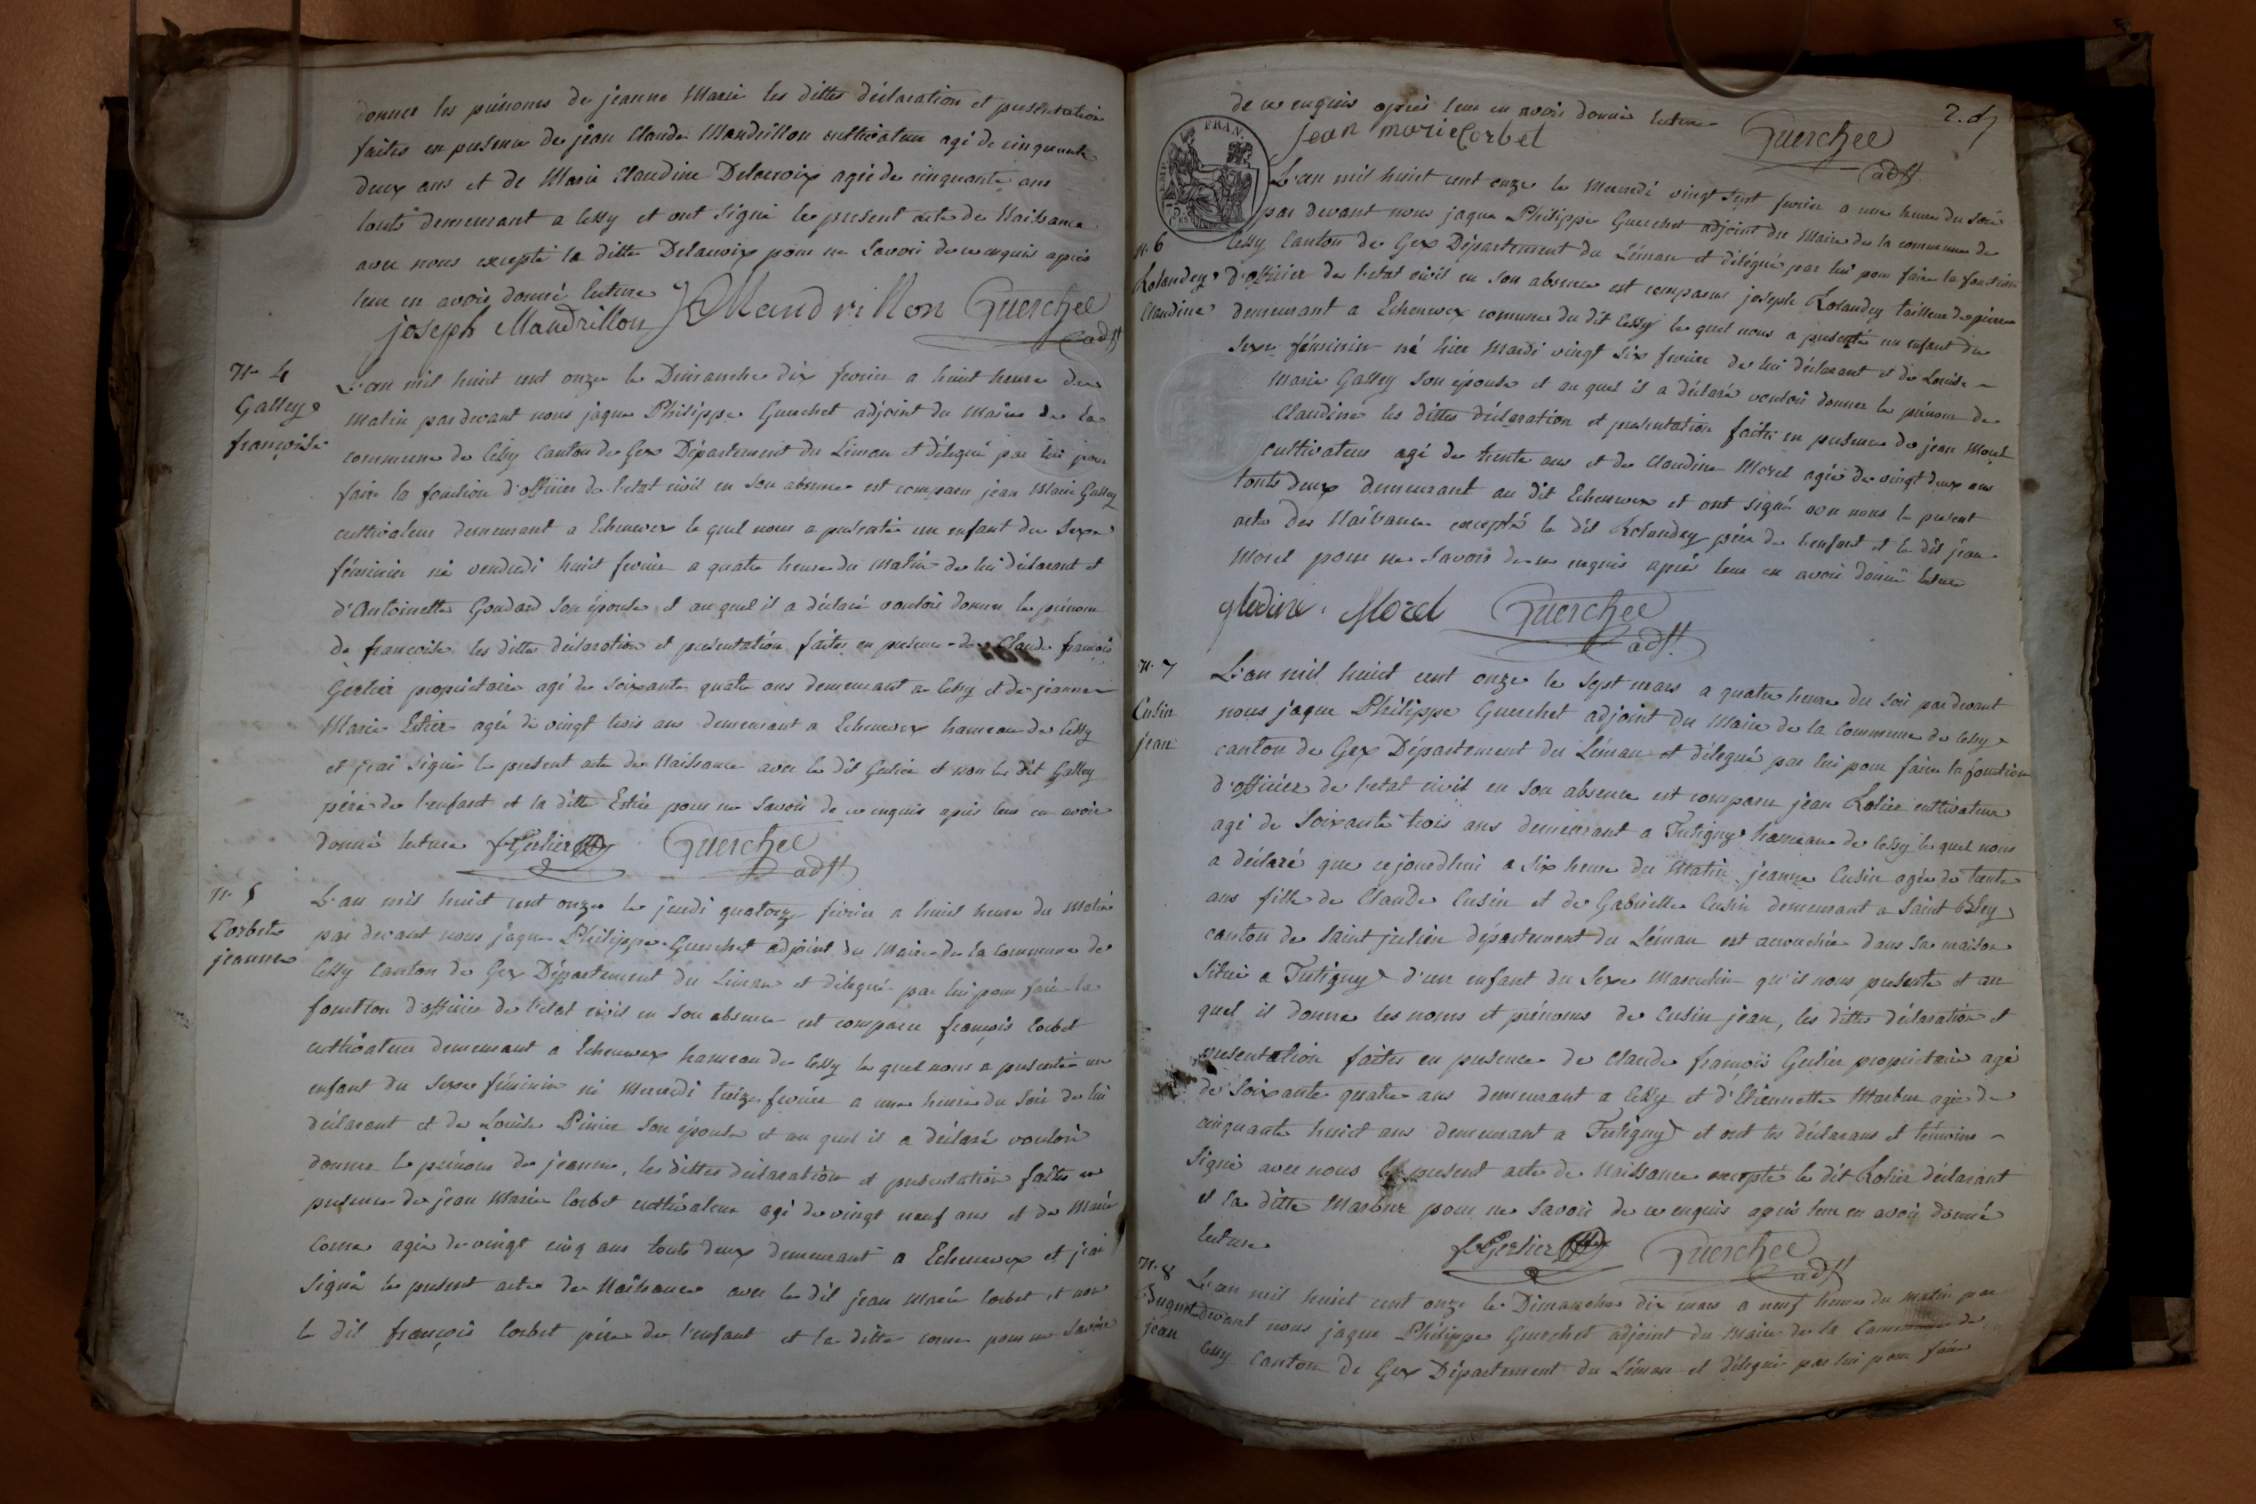 donner les prénoms de jeanne Marie les dittes déclaration et presentation
faites en presence de jean Claude Mandrillon cultivateur agé de cinquante
deux ans et de Marie Claudine Delacroix agée de cinquante ans
touts demeurant a Cessy et ont signé le present acte de Naissance
avec nous excepté la ditte Delacroix pour ne savoir de ce enquis après
leur en avoir donné lecture
joseph Mandrillon JC Mandrillon Guerchet
adjt
n. 4
Galley
françoise
L'an mil huict cent onze le Dimanche dix fevrier a huict heure du
matin pardevant nous jaque Philippe Guerchet adjoint du Maire de la
commune de Cessy Canton de Gex Département du Léman et délégué par lui pour
faire la fonction d'officier de l'etat civil en son absence est comparu jean Marie Galley
cultivateur demeurant a Echenevex le quel nous a presenté un enfant du Sexe
féminin né vendredi huict fevrier a quatre heure du matin de lui déclarant et
d'Antoinette Goudard son épouse et au quel il a déclaré vouloir donner le prénom
de françoise les dittes déclaration et présentation faites en presence de Claude françois
Gerlier propriétaire agé de soixante quatre ans demeurant a Cessy et de jeanne
Marie Estier agée de vingt trois ans demeurant a Echenevex hameau de Cessy
et j'ai signé le present acte de Naissance avec le dit Gerlier et non le dit Galley
père de l'enfant et la ditte Estier pour ne savoir de ce enquis après leur en avoir
donné lecture f Gerlier Guerchet
adjt
n. 5
Corbet
jeanne
L'an mil huict cent onze le jeudi quatorze février a huict heure du Matin
par devant nous jaque Philippe Guerchet adjoint du Maire de la Commune de
Cessy Canton de Gex Département du Léman et délégué par lui pour faire la
fonction d'officier de l'etat civil en son absence est comparu françois Corbet
cultivateur demeurant a Echenevex hameau de Cessy le quel nous a presenté un
enfant du Sexe féminin né Mercredi treize fevrier a une heure du Soir de lui
déclarant et de Louise Pinier son épouse et au quel il a déclaré vouloir
donner le prénom de jeanne, les dittes déclaration et presentation faites en
presence de jean Marie Corbet cultivateur agé de vingt neuf ans et de Marie
Corne agée de vingt cinq ans touts deux demeurant a Echenevex et j'ai
Signé le present acte de Naissance avec le dit jean Marie Corbet et non
le dit françois Corbet père de l'enfant et la ditte corne pour ne Savoir
de ce enquis après leur en avoir donné lecture
2.
jean marie Corbet Guerchet
adjt
FRAN.
n. 6
Rolandez
Claudine
L'an mil huict cent onze le Mercredi vingt sept fevrier a une heure du Soir
par devant nous jaque Philippe Guerchet adjoint du Maire de la commune de
Cessy Canton de Gex Département du Léman et délégué par lui pour faire la fonction
d'officier de l'etat civil en son absence est comparu joseph Rolandez tailleur de pierre
demeurant a Echenevex comune du dit Cessy le quel nous a presenté un enfant du
Sexe féminin né hier Mardi vingt six fevrier de lui déclarant et de Louise
Marie Galley son épouse et au quel il a déclaré vouloir donner le prénom de
Claudine les dittes déclaration et presentation faites en presence de jean Morel
cultivateur agé de trente ans et de Claudine Morel agée de vingt deux ans
touts deux demeurant au dit Echenevex et ont signé avec nous le present
acte de Naissance excepté le dit Rolandez père de l'enfant et le dit jean
Morel pour ne Savoir de ce enquis après leur en avoir donné lecture
glodine Morel Guerchet
adjt
n. 7
Cusin
jean
L'an mil huict cent onze le sept mars a quatre heure du soir pardevant
nous jaque Philippe Guerchet adjoint du Maire de la Commune de Cessy
canton de Gex Département du Léman et délégué par lui pour faire la fonction
d'officier de l'etat civil en son absence est comparu jean Rolier cultivateur
agé de Soixante trois ans demeurant a Tutigny hameau de Cessy le quel nous
a déclaré que cejourdhui a six heure du Matin jeanne Cusin agée de trente
ans fille de Claude Cusin et de Gabrielle Cusin demeurant a Saint
canton de Saint julien département du Léman est accouchée dans sa maison
située a Tutigny d'un enfant du Sexe Masculin qu'il nous presente et au
quel il donne les noms et prénoms de Cusin jean, les dittes déclaration et
presentation faites en presence de Claude françois Gerlier propriétaire agé
de Soixante quatre ans demeurant a Cessy et d'Etiennette Marbur agée de
cinquante huict ans demeurant a Tutigny et ont les déclarans et témoins
Signé avec nous le present acte de Naissance excepté le dit Rolier déclarant
et la ditte Marbur pour ne Savoir de ce enquis après leur en avoir donné
lecture f Gerlier Guerchet
adjt
n. 8
jean
L'an mil huict cent onze le Dimanche dix mars a neuf heure du matin par
devant nous jaque Philippe Guerchet adjoint du Maire de la Commune de
Cessy Canton de Gex Département du Léman et délégué par lui pour faire